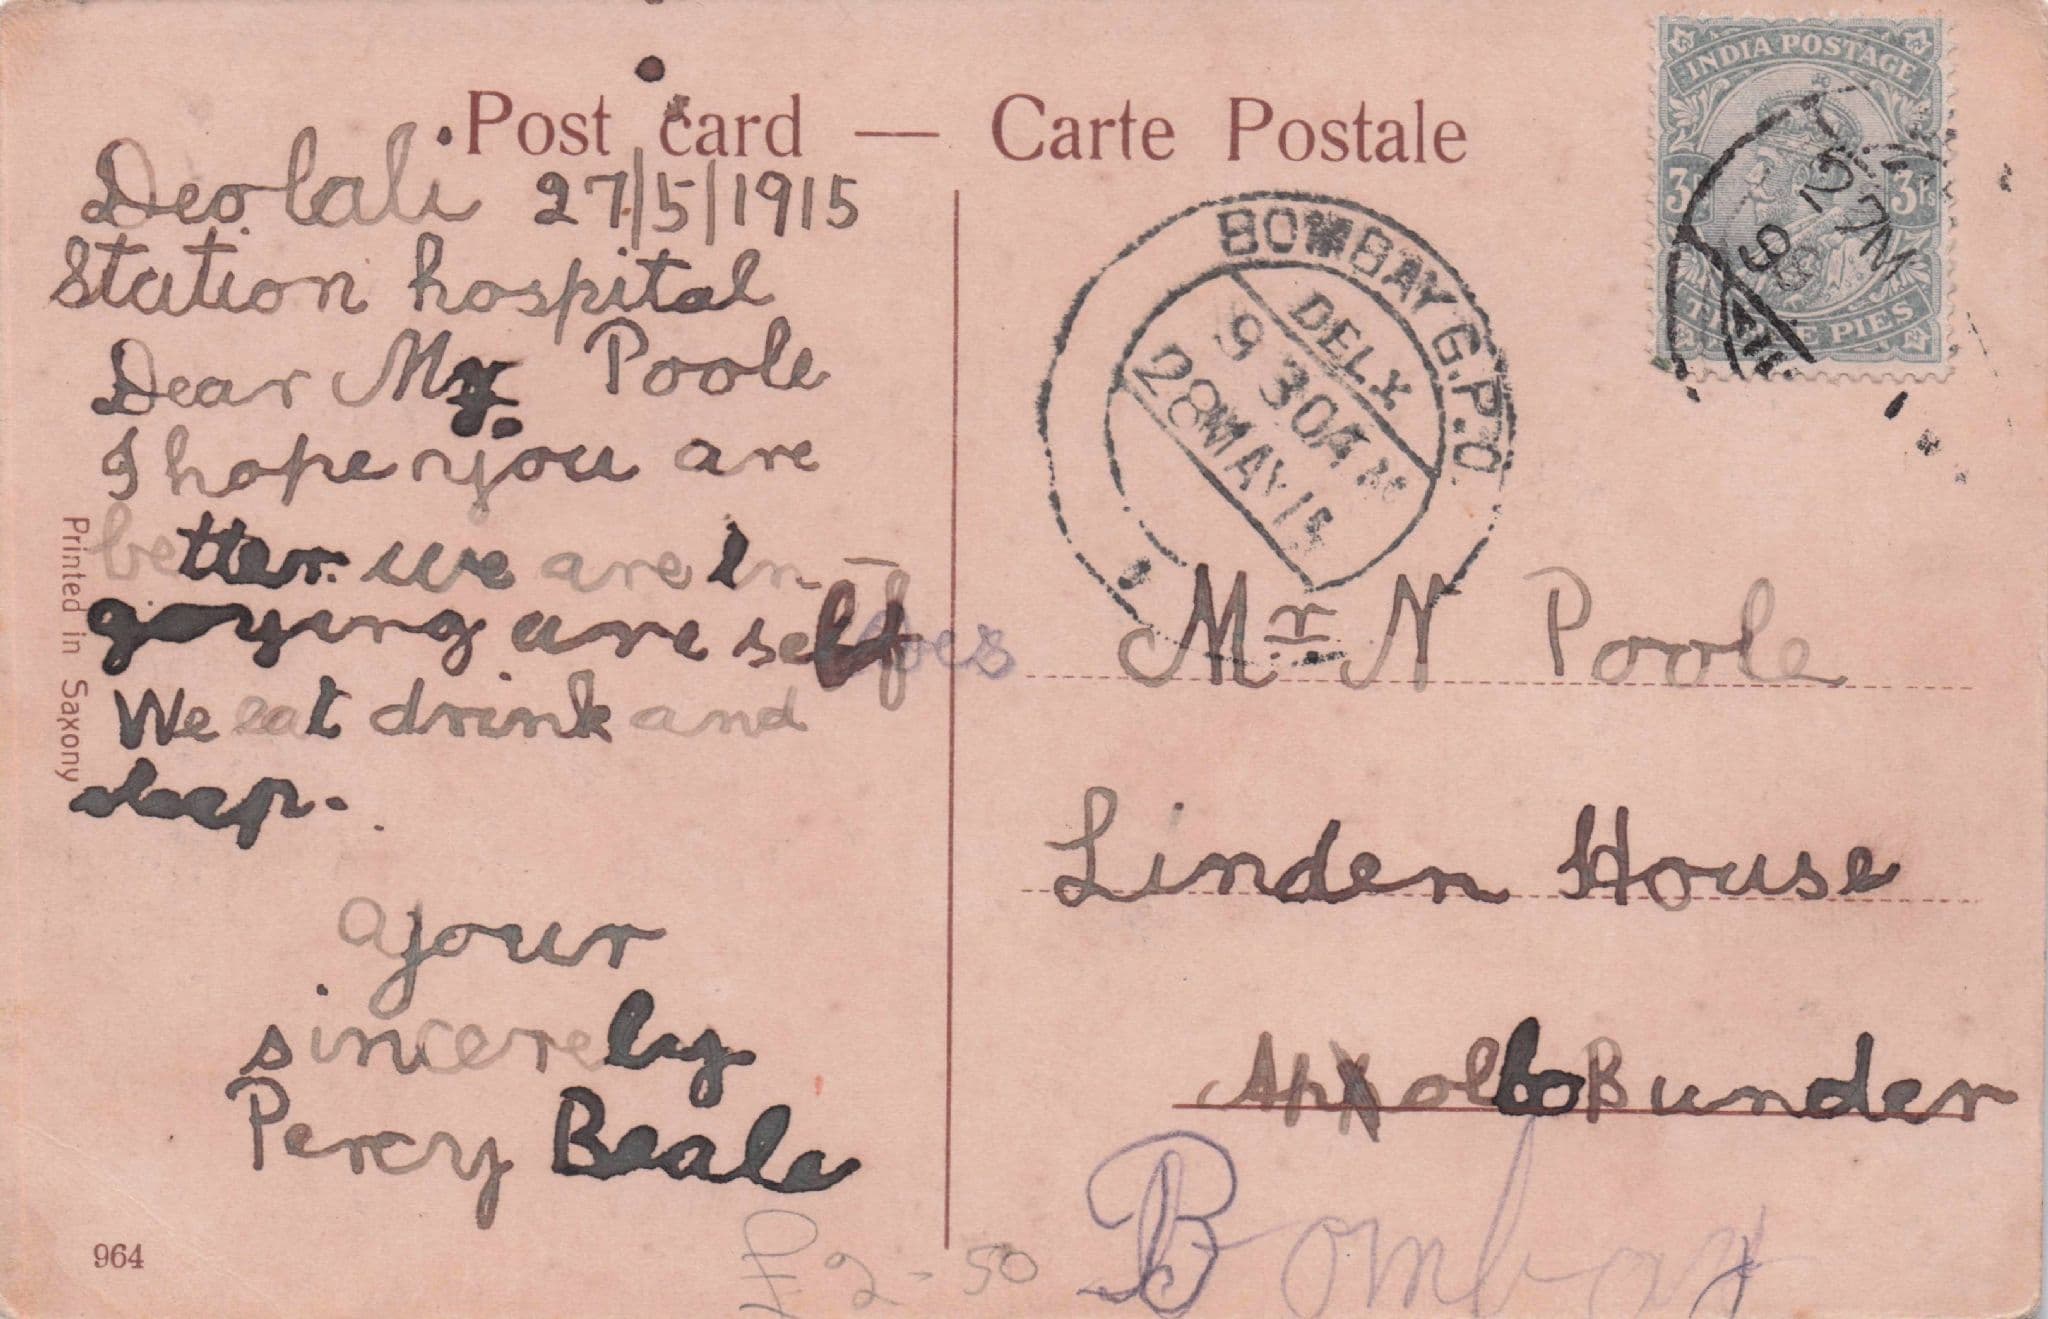 Post card — Carte Postale
Deolali 27/5/1915
Station hospital
Dear Mr Poole
I hope you are
better we are in-
goying are selfves
We eat drink and
sleep.
your
sincerely
Percy Beale
Printed in Saxony
964
£2-50
INDIA POSTAGE
3Ps 3Ps
THREE PIES
BOMBAY G.P.O.
DELY.
9 30AM
28MAY15
Mr N Poole
Linden House
Apollo Bunder
Bombay